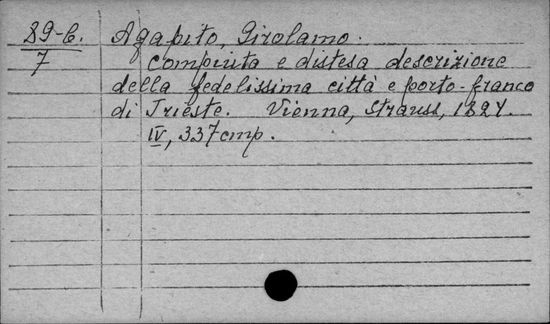 89-C. Agapito, Girolamo.
7 Compiuta e distesa descrizione
della fedelissima città e porto-franco
di Trieste. Vienna, Strauss, 1824.
IV, 337 cmp.